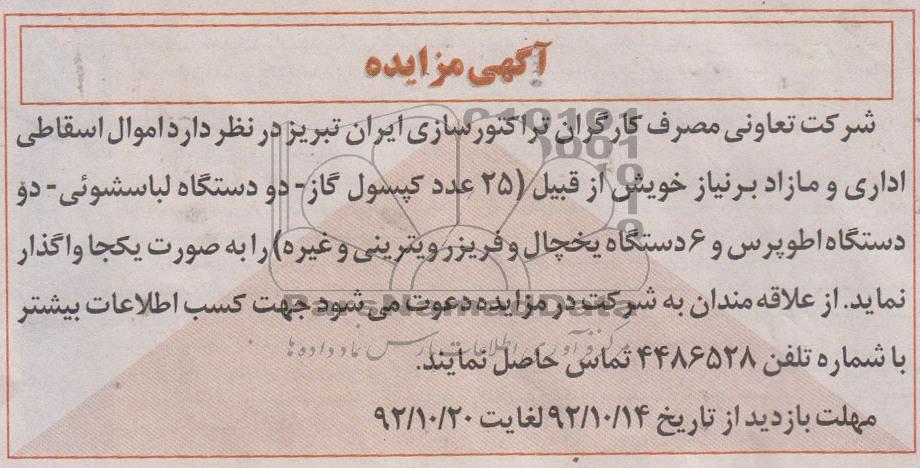 آگهی مزایده
شرکت تعاونی مصرف کارگران تراکتورسازی ایران تبریز در نظر دارد اموال اسقاطی
اداری و مازاد برنیاز خویش از قبیل (۲۵ عدد کپسول گاز- دو دستگاه لباسشوئی- دو
دستگاه اطوپرس و ۶ دستگاه یخچال و فریزر ویترینی و غیره) را به صورت یکجا واگذار
نماید. از علاقه مندان به شرکت در مزایده دعوت می شود جهت کسب اطلاعات بیشتر
با شماره تلفن ۴۴۸۶۵۲۸ تماس حاصل نمایند.
مهلت بازدید از تاریخ ۹۲/۱۰/۱۴ لغایت ۹۲/۱۰/۲۰
ParsNamadData